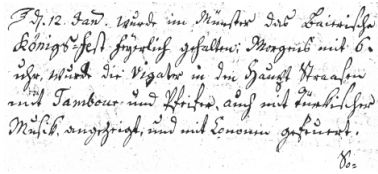 d. 12. Jan. wurde im Münster das Baierische
Königs-Fest feyerlich gehalten; Morgens mit 6.
uhr, wurde die in den Haupt Straasen
mit Tambour und Pfeifer, auch mit Türkischer
Musik, angezeigt, und mit Canonen gefeuert.
So=